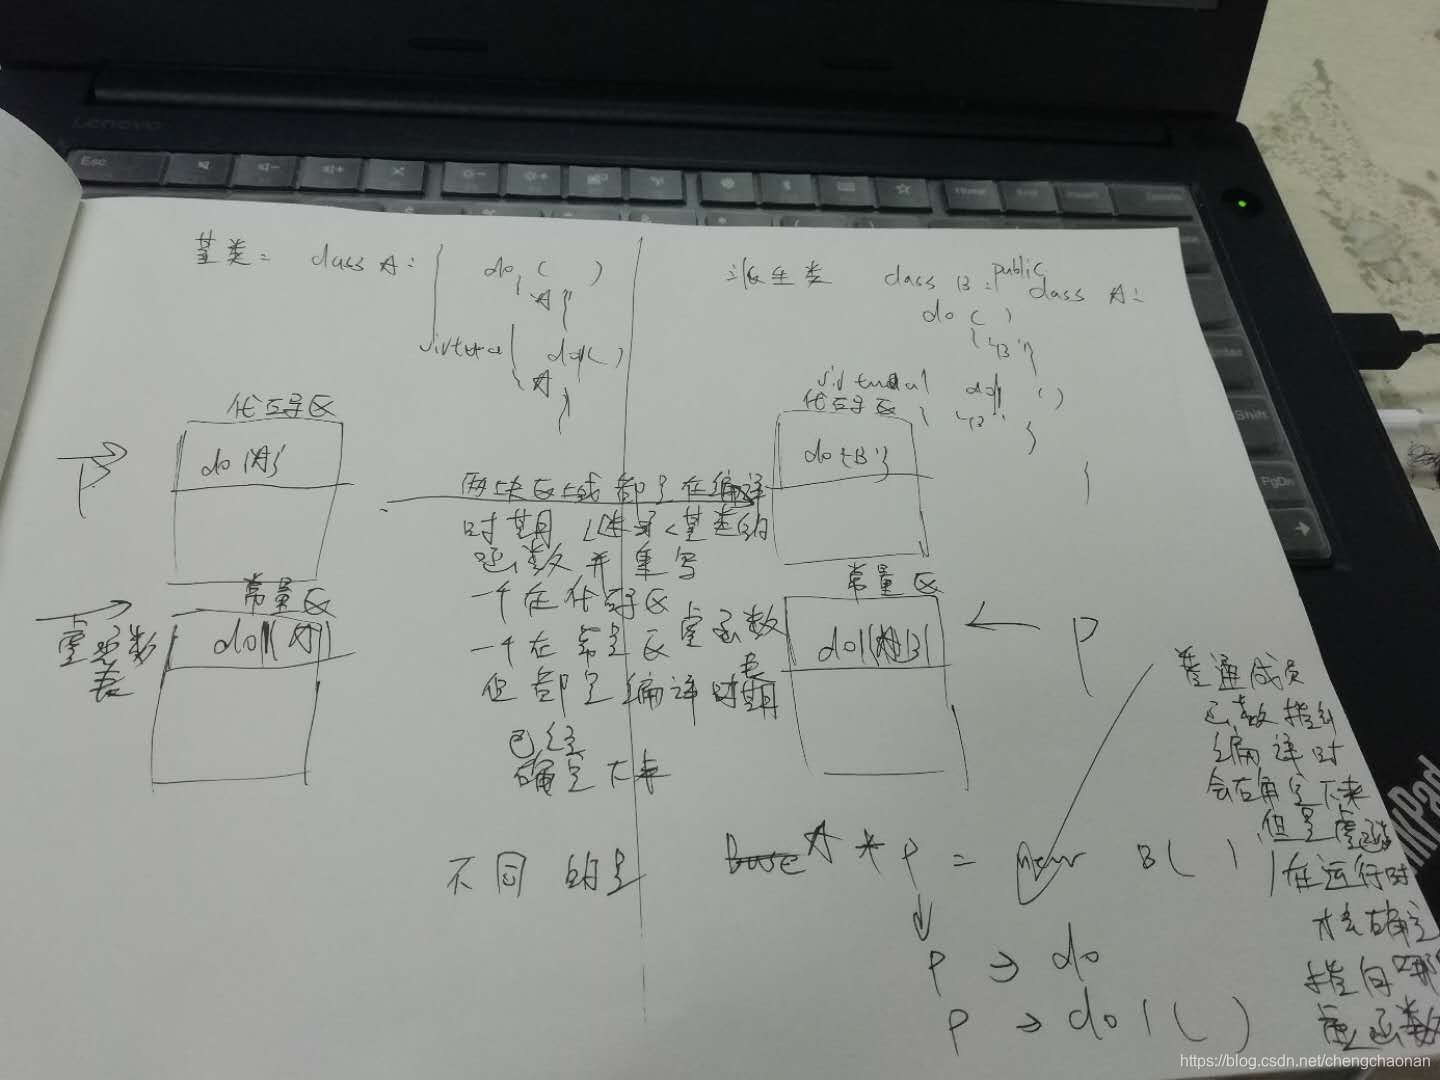 基类： class A: {
do ( )
{ A }
virtual do1( )
{ A
}
派生类 class B : public class A :
do ( )
{ 'B' }
virtual do1 ( )
{ 'B'
}
}
代码区
do{A}
P
常量区
do1(A)
虚函数
表
两块区域都是在编译
时期
函数并重写
一个在代码区
一个在常量区 虚函数表
但都是编译时期
已经
确定下来
代码区
do{B'}
常量区
do1 B
P
普通成员
函数指针
编译时
会确定下来
但是虚函数
在运行时
才会确定
指向哪
虚函数
不同的是
A * P = new B( )
P → do
P → do1 ( )
Lenovo
Esc
Home
Shift
PgDn
https://blog.csdn.net/chengchaonan